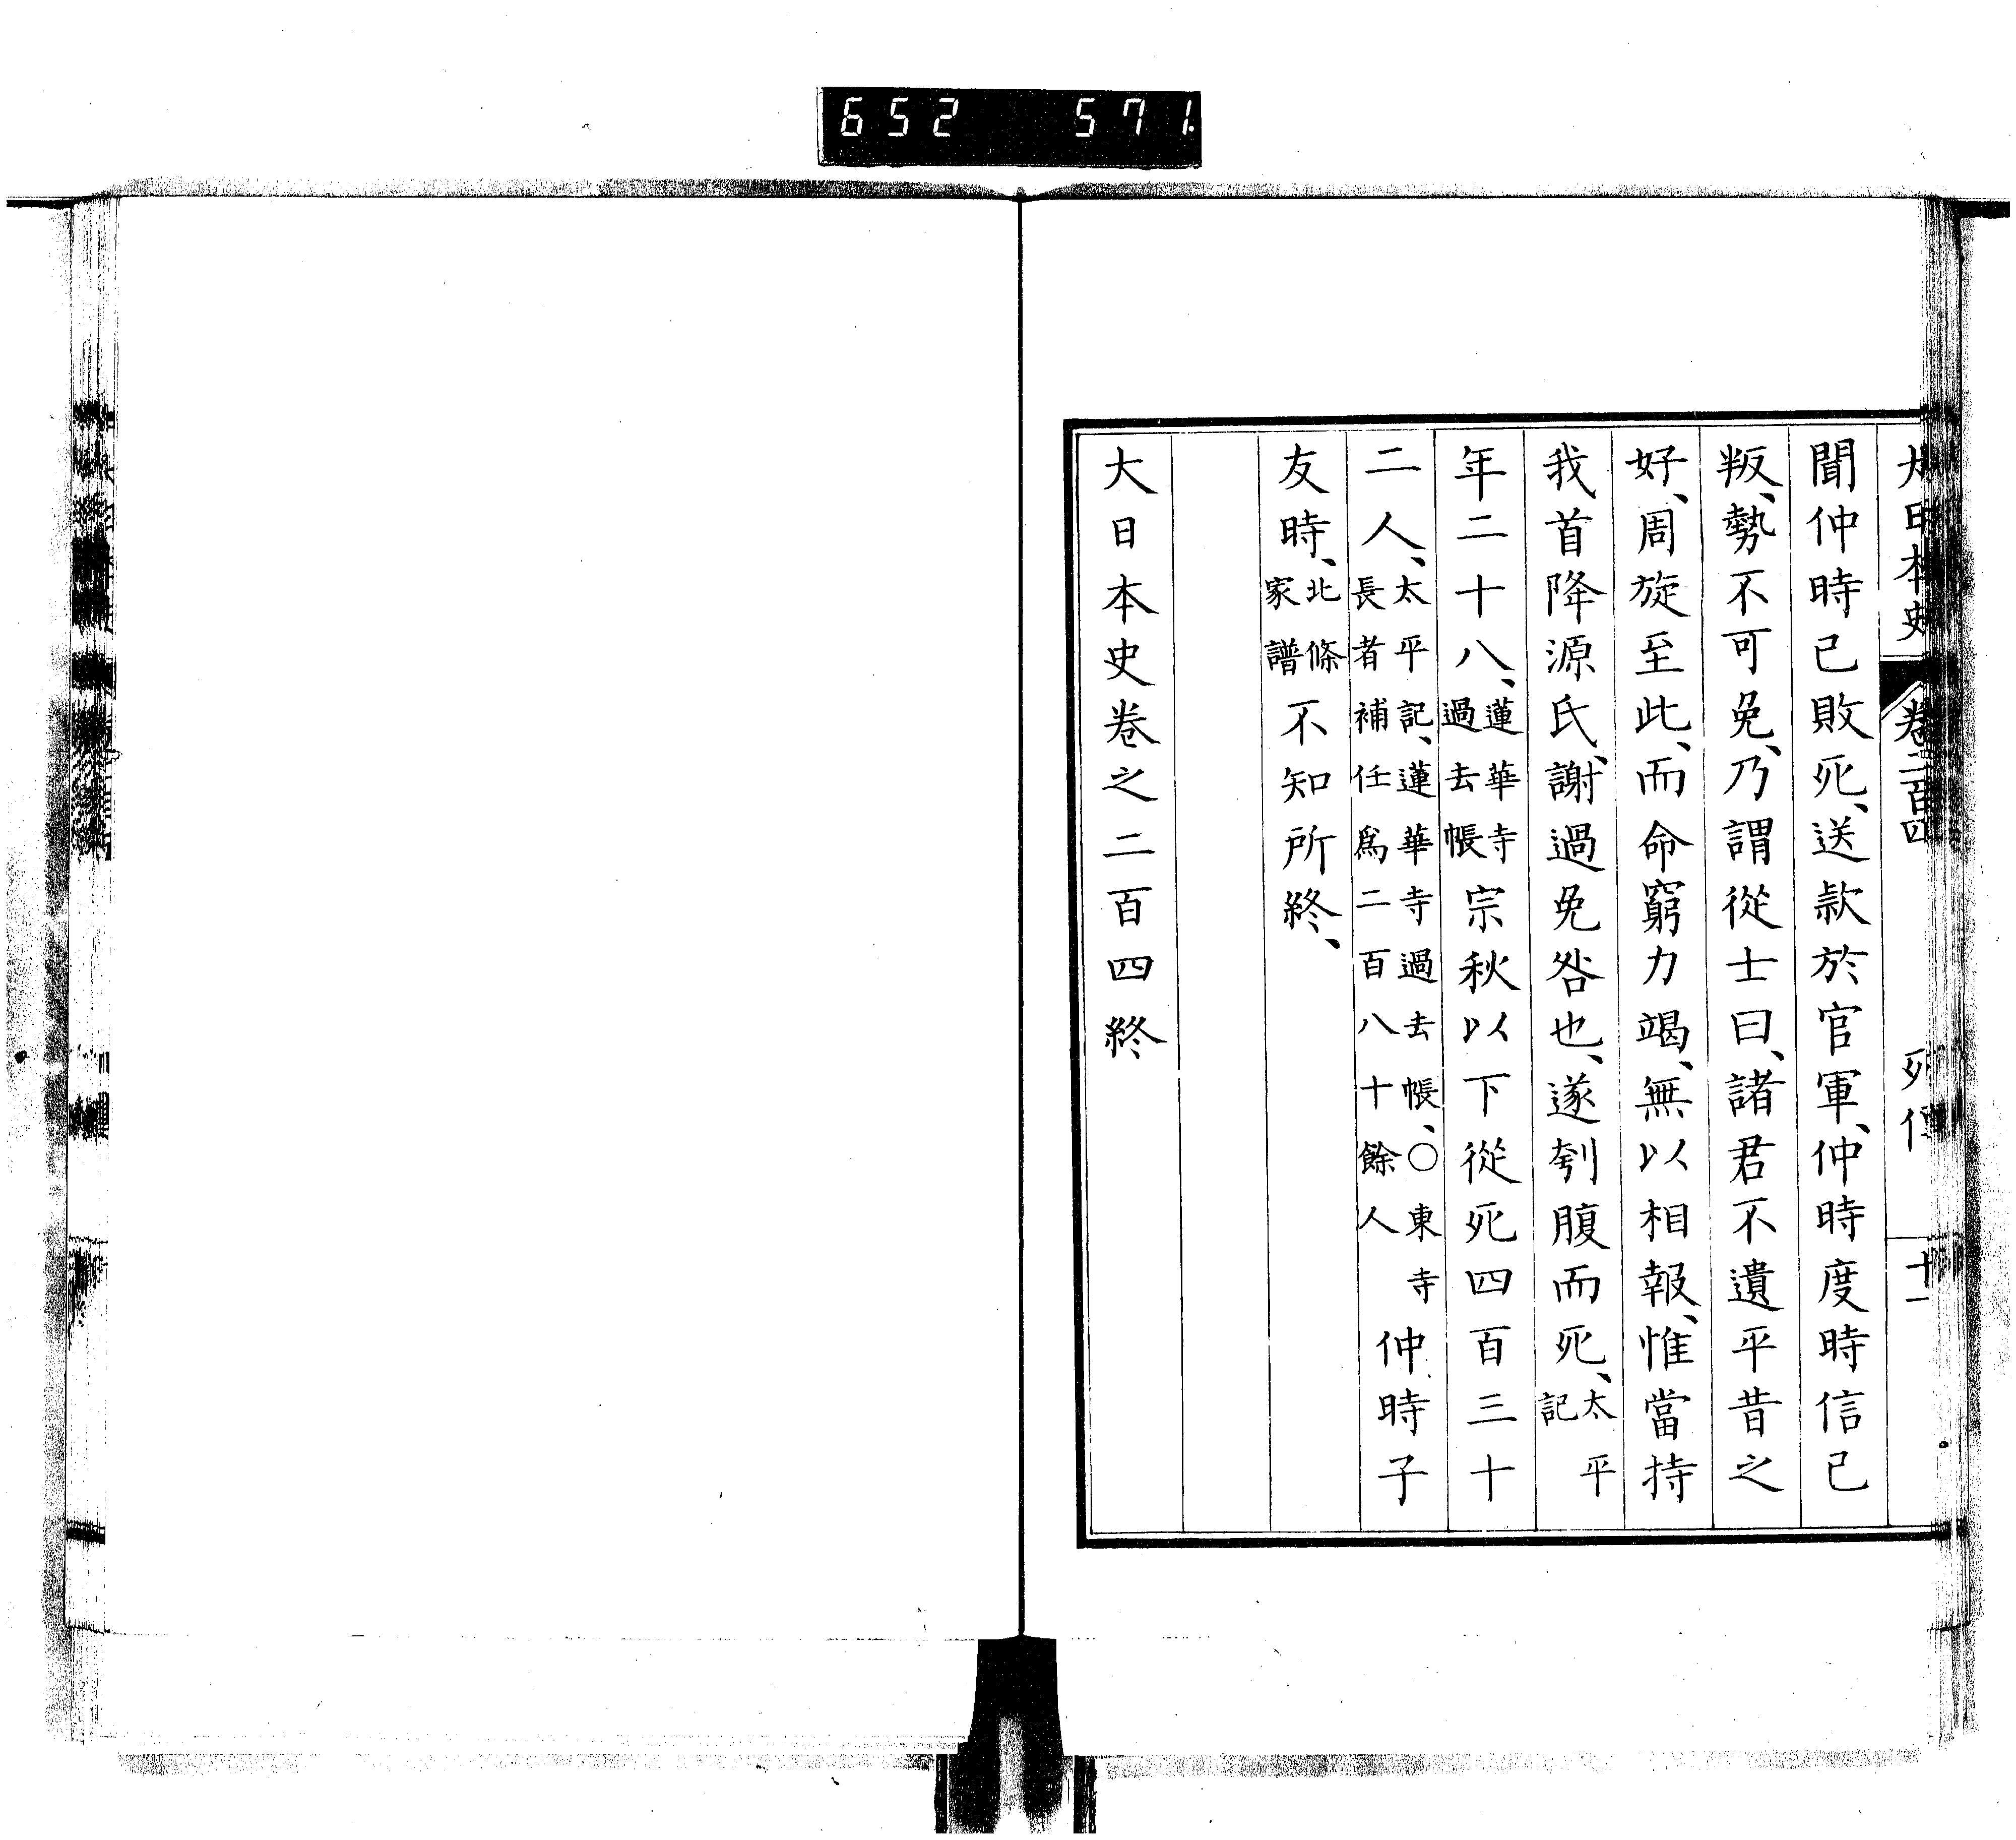 652 571
大日本史 卷二百四 列傳 十一
聞仲時已敗死、送款於官軍、仲時度時信已
叛、勢不可免、乃謂從士曰、諸君不遺平昔之
好、周旋至此、而命窮力竭、無以相報、惟當持
我首降源氏、謝過免咎也、遂刳腹而死、太平記
年二十八、蓮華寺過去帳宗秋以下從死四百三十
二人、太平記、蓮華寺過去帳、○東寺長者補任爲二百八十餘人仲時子
友時、北條家譜不知所終、
大日本史卷之二百四終